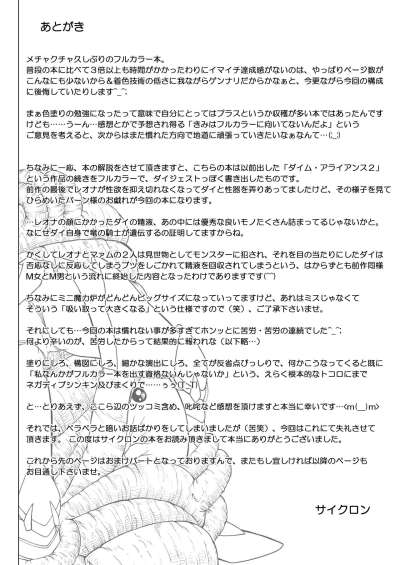 あとがき
メチャクチャ久しぶりのフルカラー本。
普段の本に比べて３倍以上も時間がかかったわりにイマイチ達成感がないのは、やっぱりページ数が
こんなにも少ないから＆着色技術の低さに我ながらゲンナリだからかなぁと、今更ながら今回の成果
に後悔していたりします^_^;
まぁ色塗りの勉強になったって意味で自分にとってはプラスというか収穫が多い本ではあったんです
けども……うーん…感想とかで予想される得る「きみはフルカラーに向いてないんだよ」という
ご意見を考えると、次からはまた慣れた方向で地道に頑張っていきたいなぁなんて…(;_;)
ちなみに一応、本の解説をさせて頂きますと、こちらの本は以前出した「ダイム・アライアンス２」
という作品の続きをフルカラーで、ダイジェストっぽく書き出したものです。
前作の最後でレオナが性欲を抑え切れなくなってダイと性器を弄りあってましたけど、その様子を見て
ひらめいたバーン様のお戯れが今回の本になります。
…レオナの顔にかかったダイの精液、あの中には優秀な良いモノたくさん詰まってるじゃないかと。
なにせダイ自身で竜の騎士が遺伝するの証明してますからね。
かくしてレオナとマァムの２人は見世物としてモンスターに犯され、それを目の当たりにしたダイは
否応なしに反応してしまうブツをしごかれて精液を回収されてしまうという、はからずとも前作同様
M女とM男という流れに終始した内容となったわけでありますです(￣)
ちなみにミニ魔力炉がどんどんビッグサイズになっていってますけど、あれはミスじゃなくて
そういう「吸い取って大きくなる」という仕様ですので（笑）、ご了承下さいませ。
それにしても…今回の本は慣れない事が多すぎてホンッとに苦労・苦労の連続でした^_^;
何より辛いのが、苦労したからって結果的に報われな（以下略…）
塗りにしろ、構図にしろ、細かな演出にしろ、全てが反省点びっしりで、何かこうなってくると既に
「私なんかがフルカラー本を出す資格ないんじゃないか」という、えらく根本的なトコロにまで
ネガティブシンキン及びまくりで……ぅぅ(T_T)
と…とりあえず、ここら辺のツッコミ含め、叱咤など感想を頂けますと本当に幸いです…<m(__)m>
それでは、ベラベラと暗いお話ばかりをしてしまいましたが（苦笑）、今回はこれにて失礼させて
頂きます。この度はサイクロンの本をお読み頂きまして本当にありがとうございました。
これから先のページはおまけパートとなっておりますんで、またもし宜しければ以降のページも
お目通し下さいませ。
サイクロン